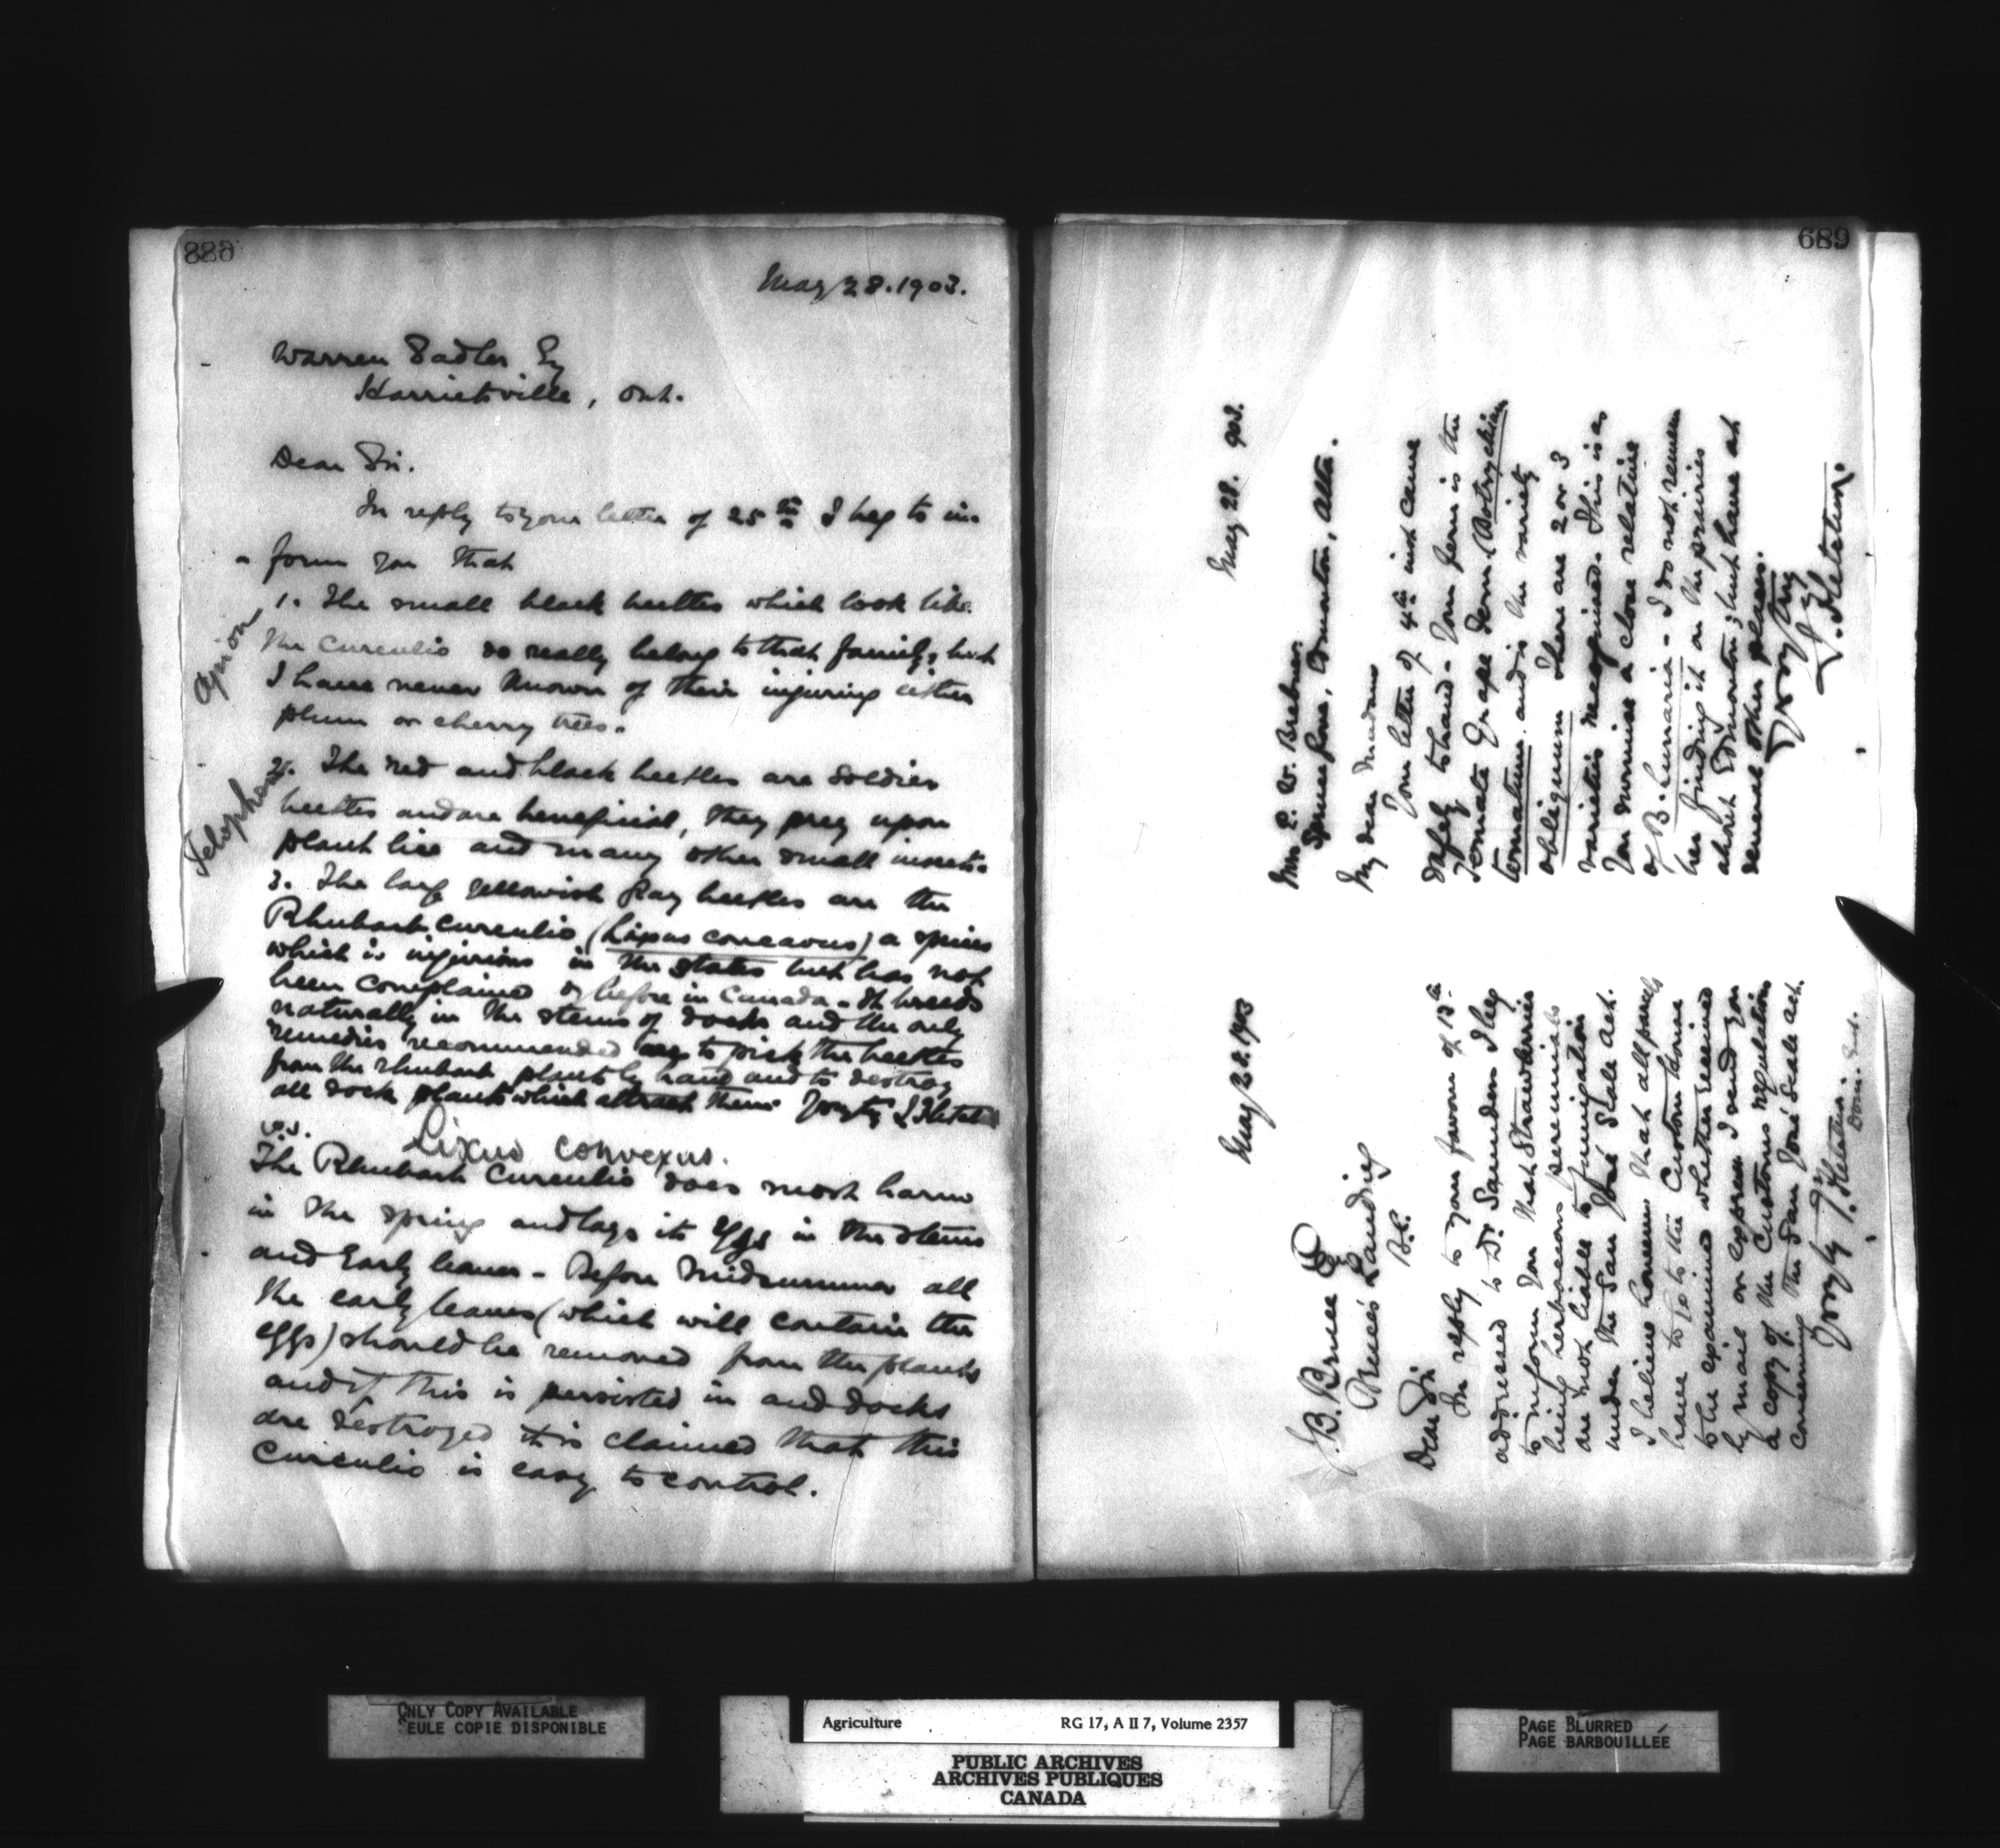 688
May 28. 1903.
Warren Sadler Esq
Harrietsville, Ont.
Dear Sir.
In reply to your letter of 25th I beg to in-
form you that
Apion
1. The small black beetles which look like
the curculio do really belong to that family, but
I have never known of their injuring either
plum or cherry trees.
Telephorus
2. The red and black beetles are Soldier
beetles and are beneficial, they prey upon
plant lice and many other small insects.
3. The large yellowish gray beetles are the
Rhubarb Curculio (Lixus concavus) a species
which is injurious in the States but has not
been complained of before in Canada - It breeds
naturally in the stems of docks and the only
remedies recommended are to pick the beetles
from the rhubarb plants by hand and to destroy
all dock plants which attract them. Yrs try J. Fletcher
P.S. Lixus convexus.
The Rhubarb Curculio does most harm
in the spring and lays its eggs in the stems
and Early leaves - Before Midsummer all
the early leaves (which will contain the
eggs) should be removed from the plants
and if this is persisted in and docks
are destroyed it is claimed that this
curculio is easy to control.
689
May 28. 1903
J. B. Bruce Esq
Bruce's Landing
B.C.
Dear Sir
In reply to your favour of 13th
addressed to Dr Saunders I beg
to inform you that Strawberries
being herbaceous perennials
are not liable to fumigation
under the San José Scale Act.
I believe however that all parcels
have to go to the Custom house
to be examined whether received
by mail or express. I send you
a copy of the Customs regulations
concerning the San José Scale act.
Yrs try J. Fletcher.
Dom. Ent.
May 28. 903.
Mrs P. W. Brebner.
Spruce Grove, Edmonton, Alta.
My dear Madam
Your letter of 4th inst came
safely to hand - Your fern is the
Ternate Grape Fern (Botrychium
ternatum and is the variety
obliquum There are 2 or 3
varieties recognised. This is as
you surmise a close relative
of B. Lunaria - I do not remem
ber finding it on the prairies
about Edmonton, but have at
several other places.
Yrs very try
J. Fletcher.
ONLY COPY AVAILABLE
SEULE COPIE DISPONIBLE
Agriculture RG 17, A II 7, Volume 2357
PUBLIC ARCHIVES
ARCHIVES PUBLIQUES
CANADA
PAGE BLURRED
PAGE BARBOUILLÉE